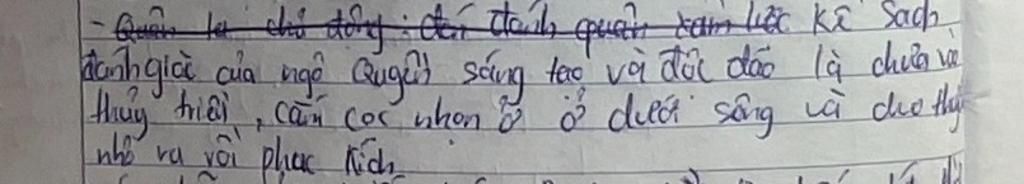 - Quân ta chủ động: đã đánh quân xâm lược Kế Sach
đánh giặc của ngô Quyền sáng tạo và độc đáo là chưa và
thủy triều, cắm cọc nhọn ở ở dưới sông và cho thy
nhô ra rồi phục kích